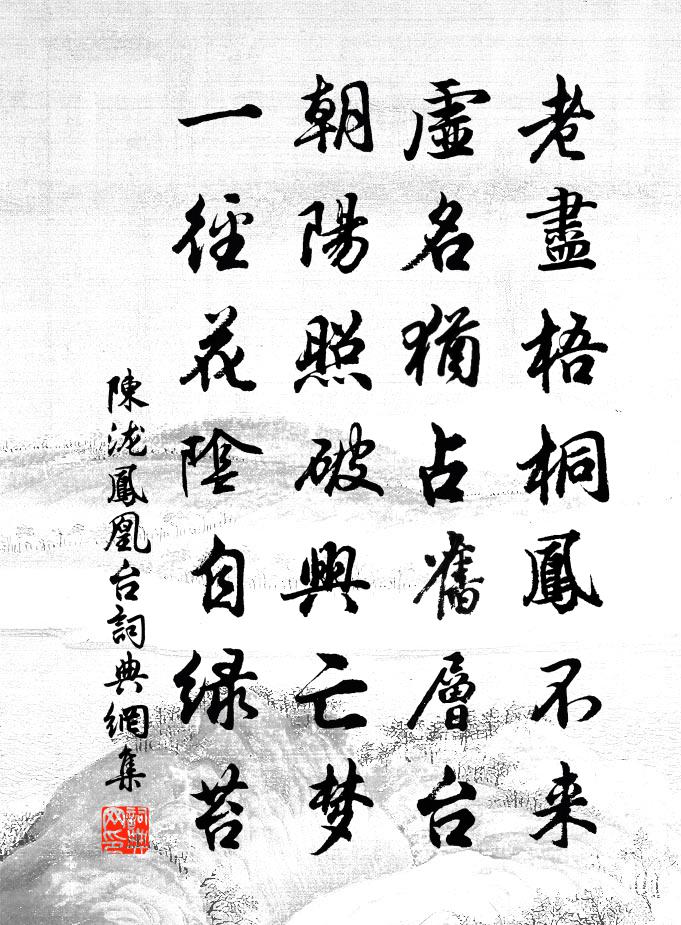 老盡梧桐鳳不来
虛名猶占舊層台
朝陽照破興亡梦
一徑花陰自緑苔
陳浤鳳凰台詞典網集